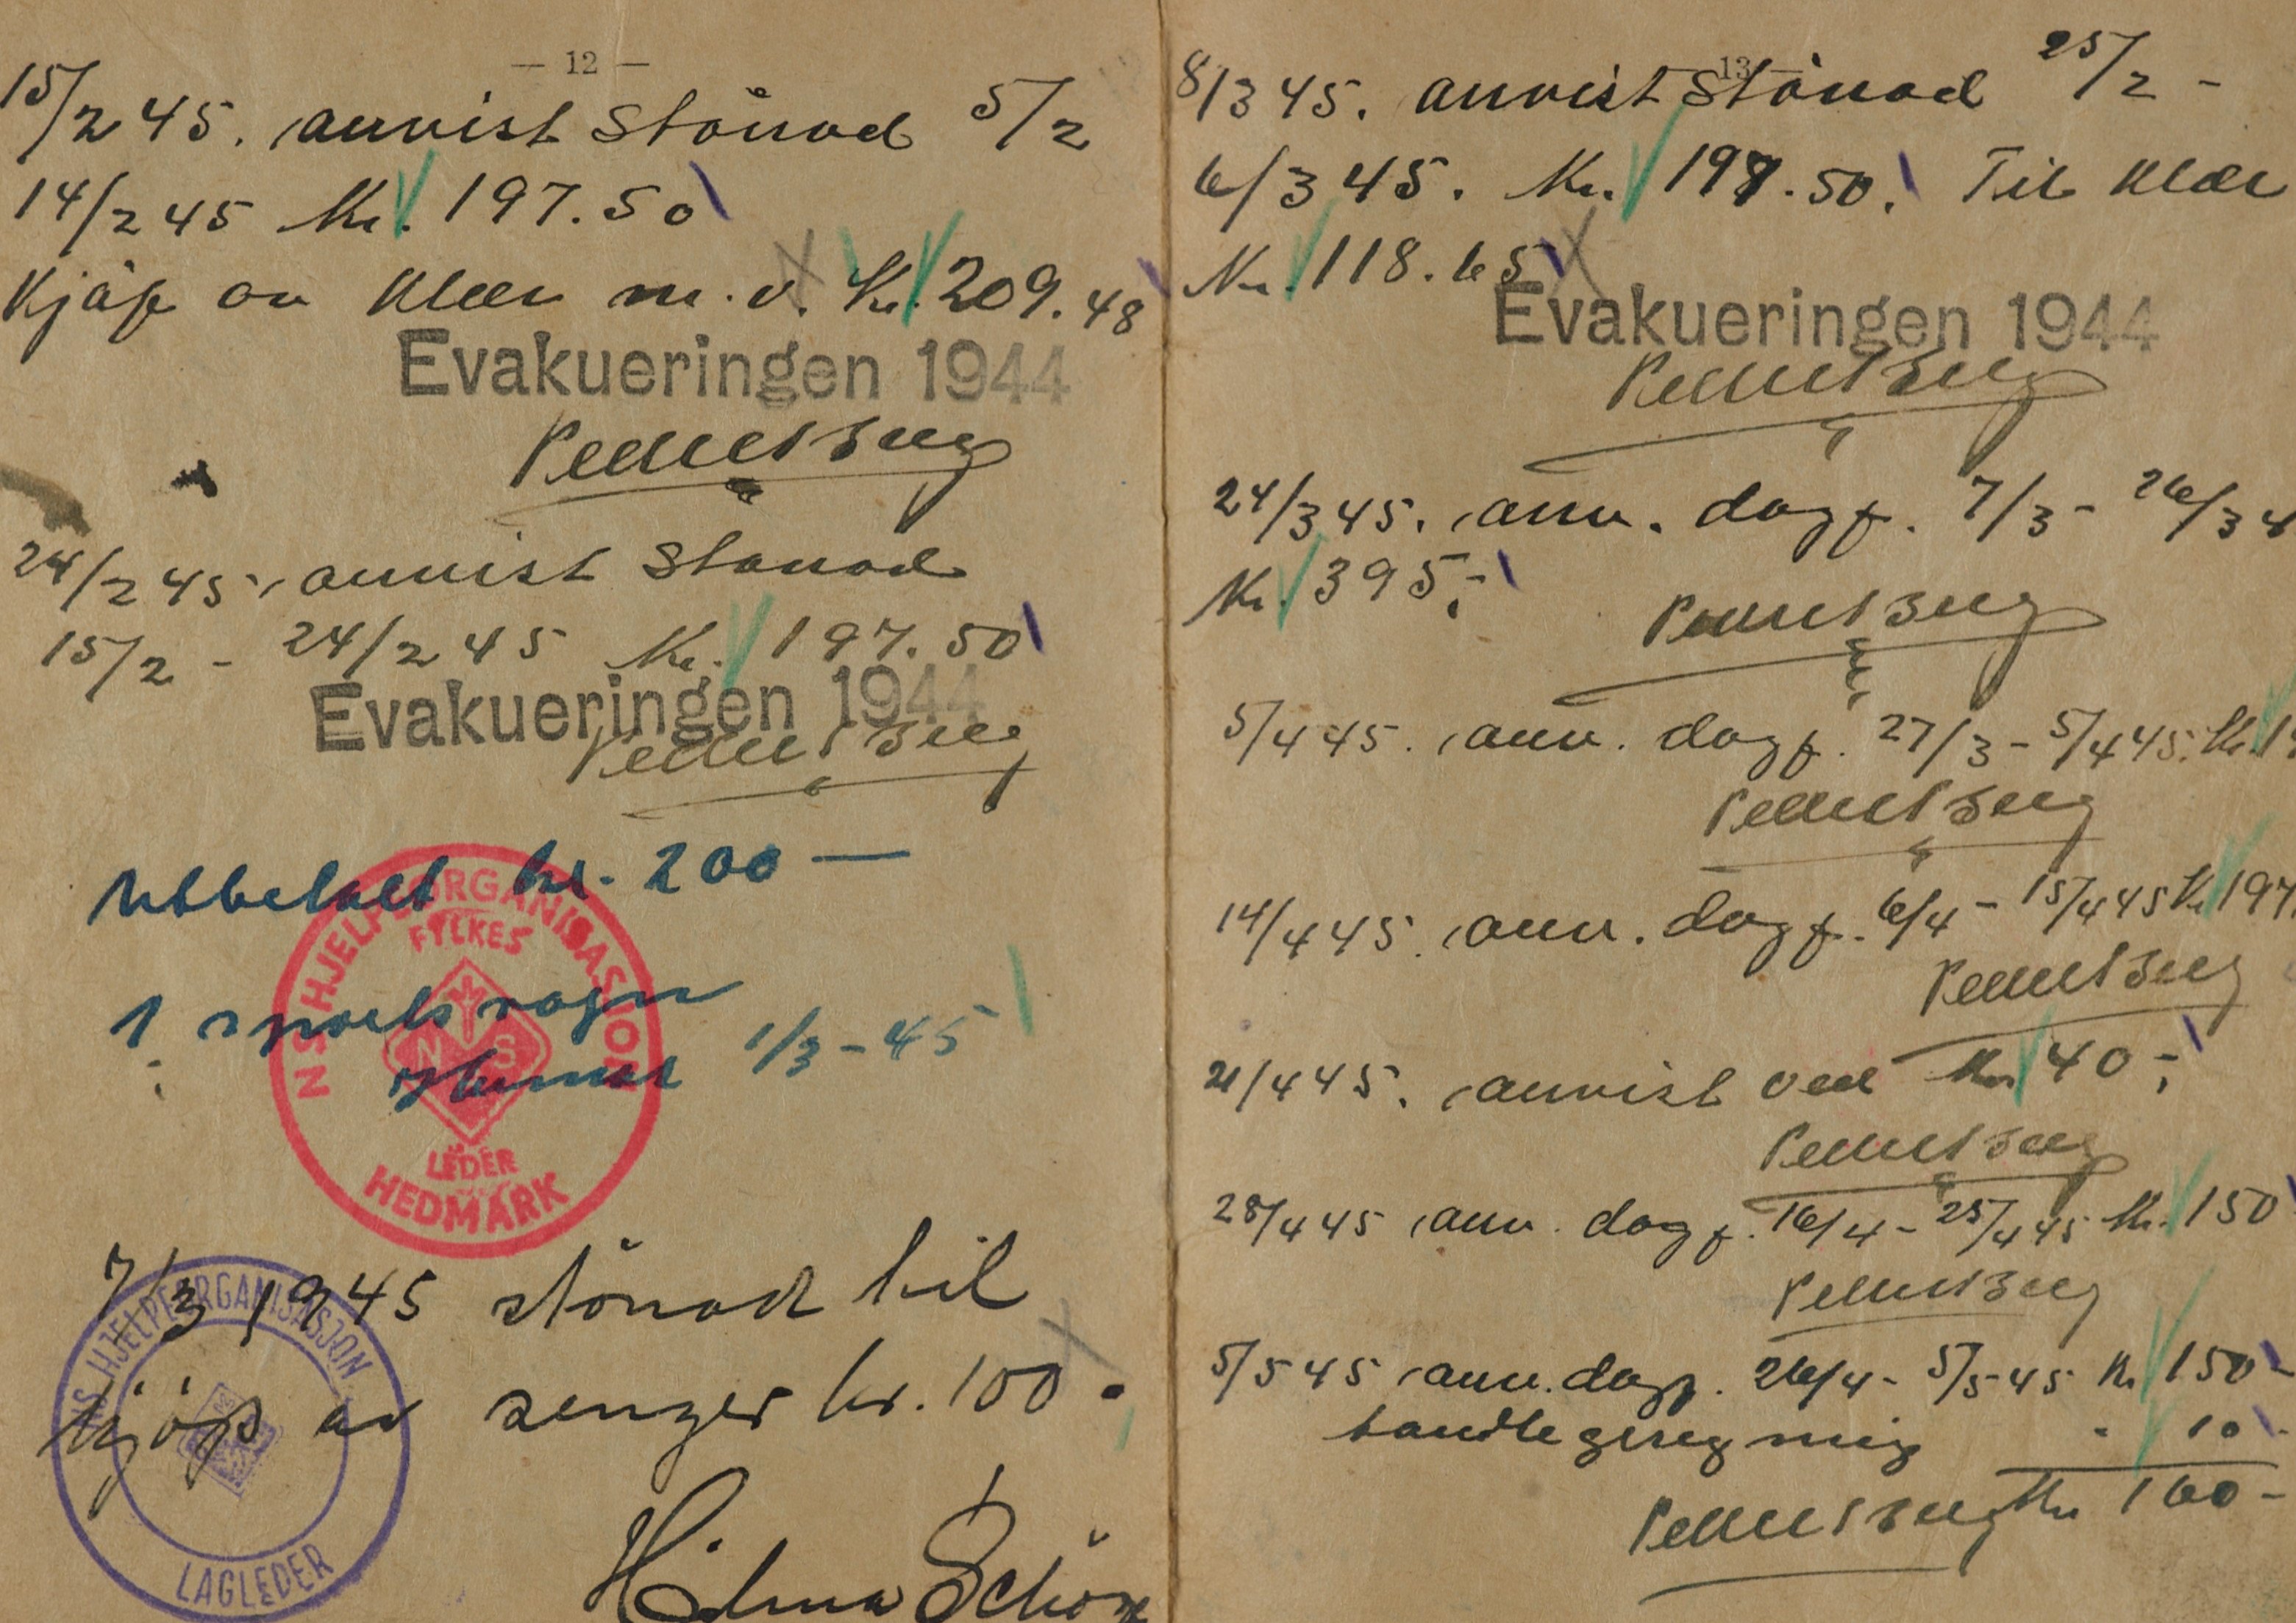 — 12 —
15/2 45. anvist stönad 5/2
14/2 45 Kr. 197.50
Kjöp av klær m.v. Kr. 209.48
Evakueringen 1944
24/2 45. anvist stönad
15/2 - 24/2 45 Kr. 197.50
Evakueringen 1944
Utbetalt kr. 200 —
1 sportsvogn
1/3 - 45
NS HJELPEORGANISASJON
FYLKES
NS
LEDER
HEDMARK
7/3 1945 stönad til
kjöp av senger kr. 100.
NS HJELPEORGANISASJON
LAGLEDER
Hilma
13
8/3 45. anvist stönad 25/2 -
6/3 45. Kr. 197.50. Til klær
Kr. 118.65
Evakueringen 1944
24/3 45. anv. dagp. 7/3 - 26/3 4
Kr. 395,-
5/4 45. anv. dagp. 27/3 - 5/4 45. Kr. 19
14/4 45. anv. dagp. 6/4 - 15/4 45 Kr 197
21/4 45. anvist ved Kr 40,-
28/4 45 anv. dagp. 16/4 - 25/4 45 Kr. 150
5/5 45 anv. dagp. 26/4 - 5/5-45 Kr 150-
tandlegeregning " 10.
Kr 160-